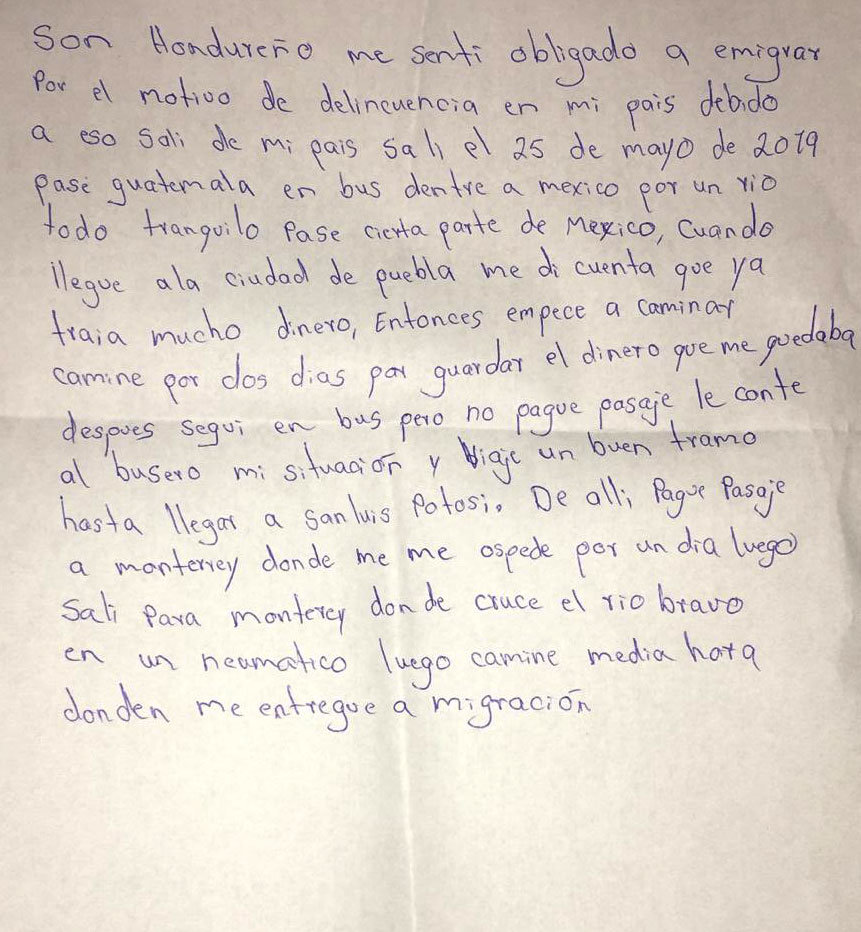 Son Hondureño me senti obligado a emigrar
Por el motivo de delincuencia en mi pais debido
a eso Sali de mi pais Sali el 25 de mayo de 2019
pase guatemala en bus dentre a mexico por un rio
todo tranquilo Pase cierta parte de Mexico, Cuando
llegue ala ciudad de puebla me di cuenta que ya
traia mucho dinero, Entonces empece a caminar
camine por dos dias por guardar el dinero que me quedaba
despues segui en bus pero no pague pasaje le conte
al busero mi situación y Viaje un buen tramo
hasta llegar a san luis Potosi. De alli Pague Pasaje
a monterrey donde me me ospede por un dia luego
Sali Para monterey donde cruce el rio bravo
en un neumatico luego camine media hora
donden me entregue a migración